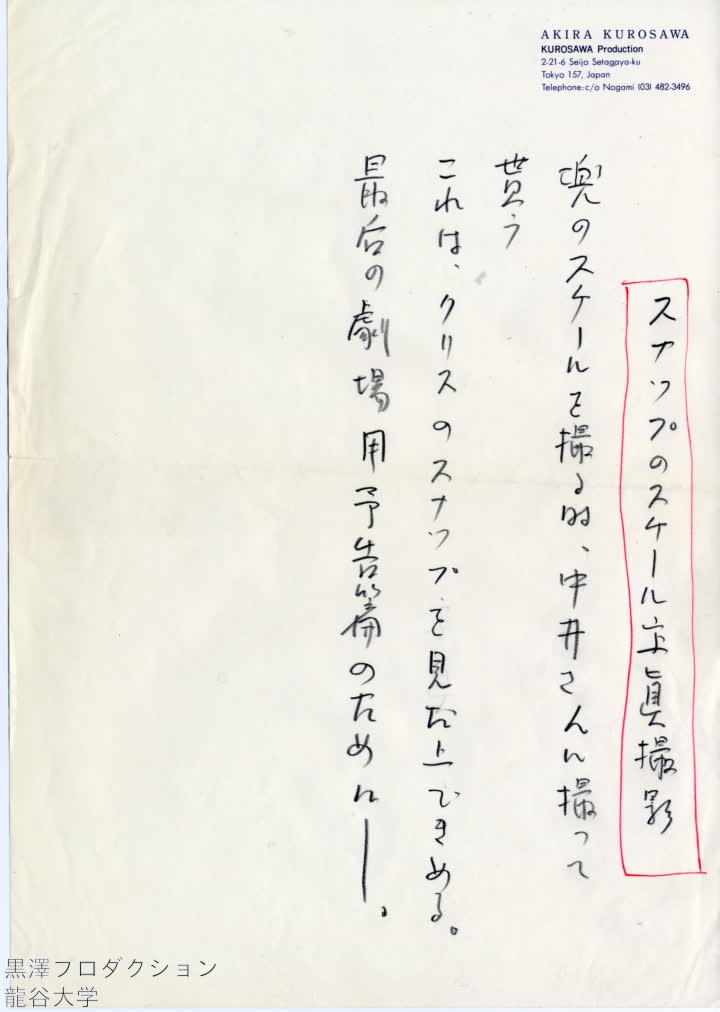 AKIRA KUROSAWA
KUROSAWA Production
2-21-6 Seijo Setagaya-ku
Tokyo 157, Japan
Telephone:c/o Nogami (03) 482-3496
スナップのスケール写真撮影
兜のスケールを撮る時、中井さんに撮って
貰う
これは、クリスのスナップを見た上できめる。
最后の劇場用予告篇のためにー。
黒澤プロダクション
龍谷大学